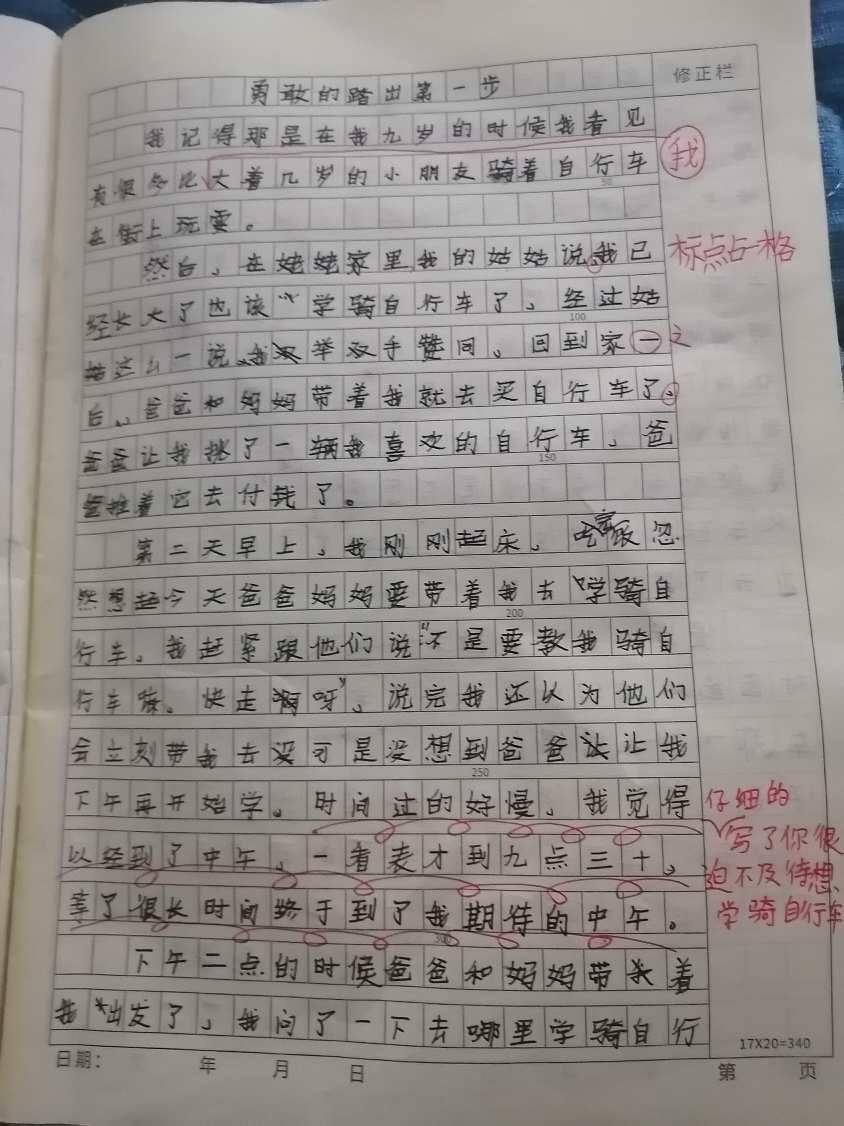 修正栏
勇敢的踏出第一步
我记得那是在我九岁的时候我看见
有很多比大着几岁的小朋友骑着自行车
我
50
在街上玩耍。
然后，在姥姥家里我的姑姑说我已
标点占一格
经长大了也该学骑自行车了，经过姑
100
姑这么一说，我举双手赞同，回到家一之
后，爸爸和妈妈带着我就去买自行车了。
爸爸让我挑了一辆我喜欢的自行车，爸
150
爸推着它去付钱了。
第二天早上，我刚刚起床，吃完饭忽
然想起今天爸爸妈妈要带着我去学骑自
200
行车，我赶紧跟他们说"不是要教我骑自
行车嘛。快走啊呀"，说完我还以为他们
会立刻带我去没可是没想到爸爸让我
250
下午再开始学。时间过的好慢，我觉得
仔细的
写了你很
以经到了中午，一看表才到九点三十，
迫不及待想
等了很长时间终于到了我期待的中午。
学骑自行车
300
下午二点的时候爸爸和妈妈带着
我出发了，我问了一下去哪里学骑自行
17X20=340
日期： 年 月 日
第 页